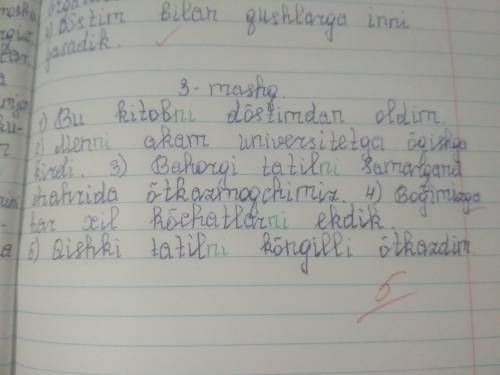 2) Dõstim bilan qushlarga inni
yasadik.
3-mashq.
1) Bu kitobni dõstimdan oldim.
2) Menni akam universitetga õqishga
kirdi. 3) Bahorgi tatilni Samarqand
shahrida õtkazmoqchimiz. 4) Boğimizga
har xil kõchatlarni ekdik.
5) Qishki tatilni kõngilli õtkazdim
5